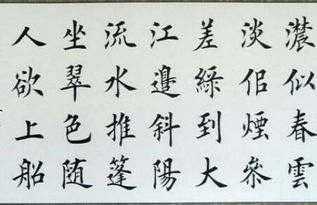 濃似春雲
淡佀煙參
差綠到大
江邊斜陽
流水推篷
坐翠色随
人欲上船